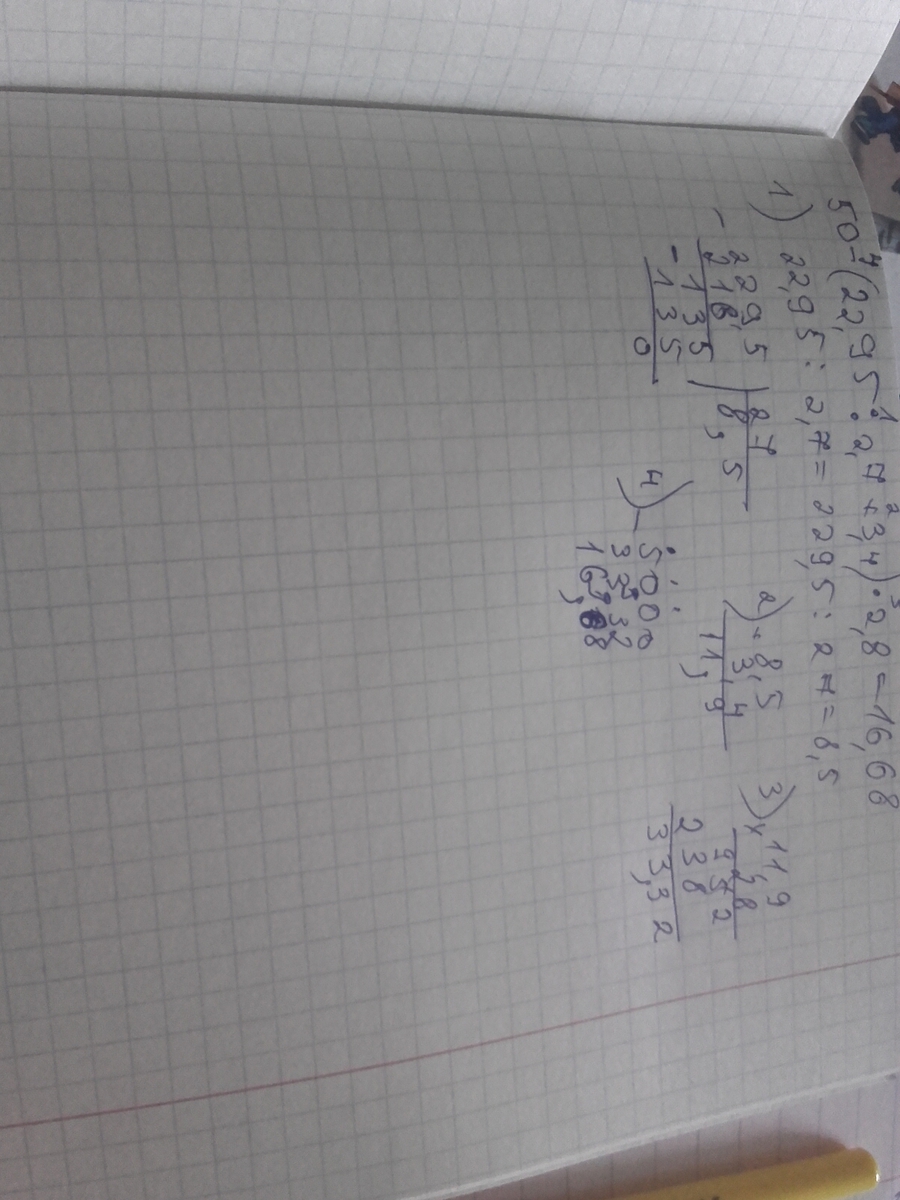 50-(22,95:2,7+3,4)·2,8=16,68
4 1 2 3
1) 22,95:2,7=229,5:27=8,5
-229,5 27
216 8,5
-135
135
0
2) 8,5
3,4
11,9
3) ×11,9
2,8
952
238
33,32
4) -5000
33,32
16,68